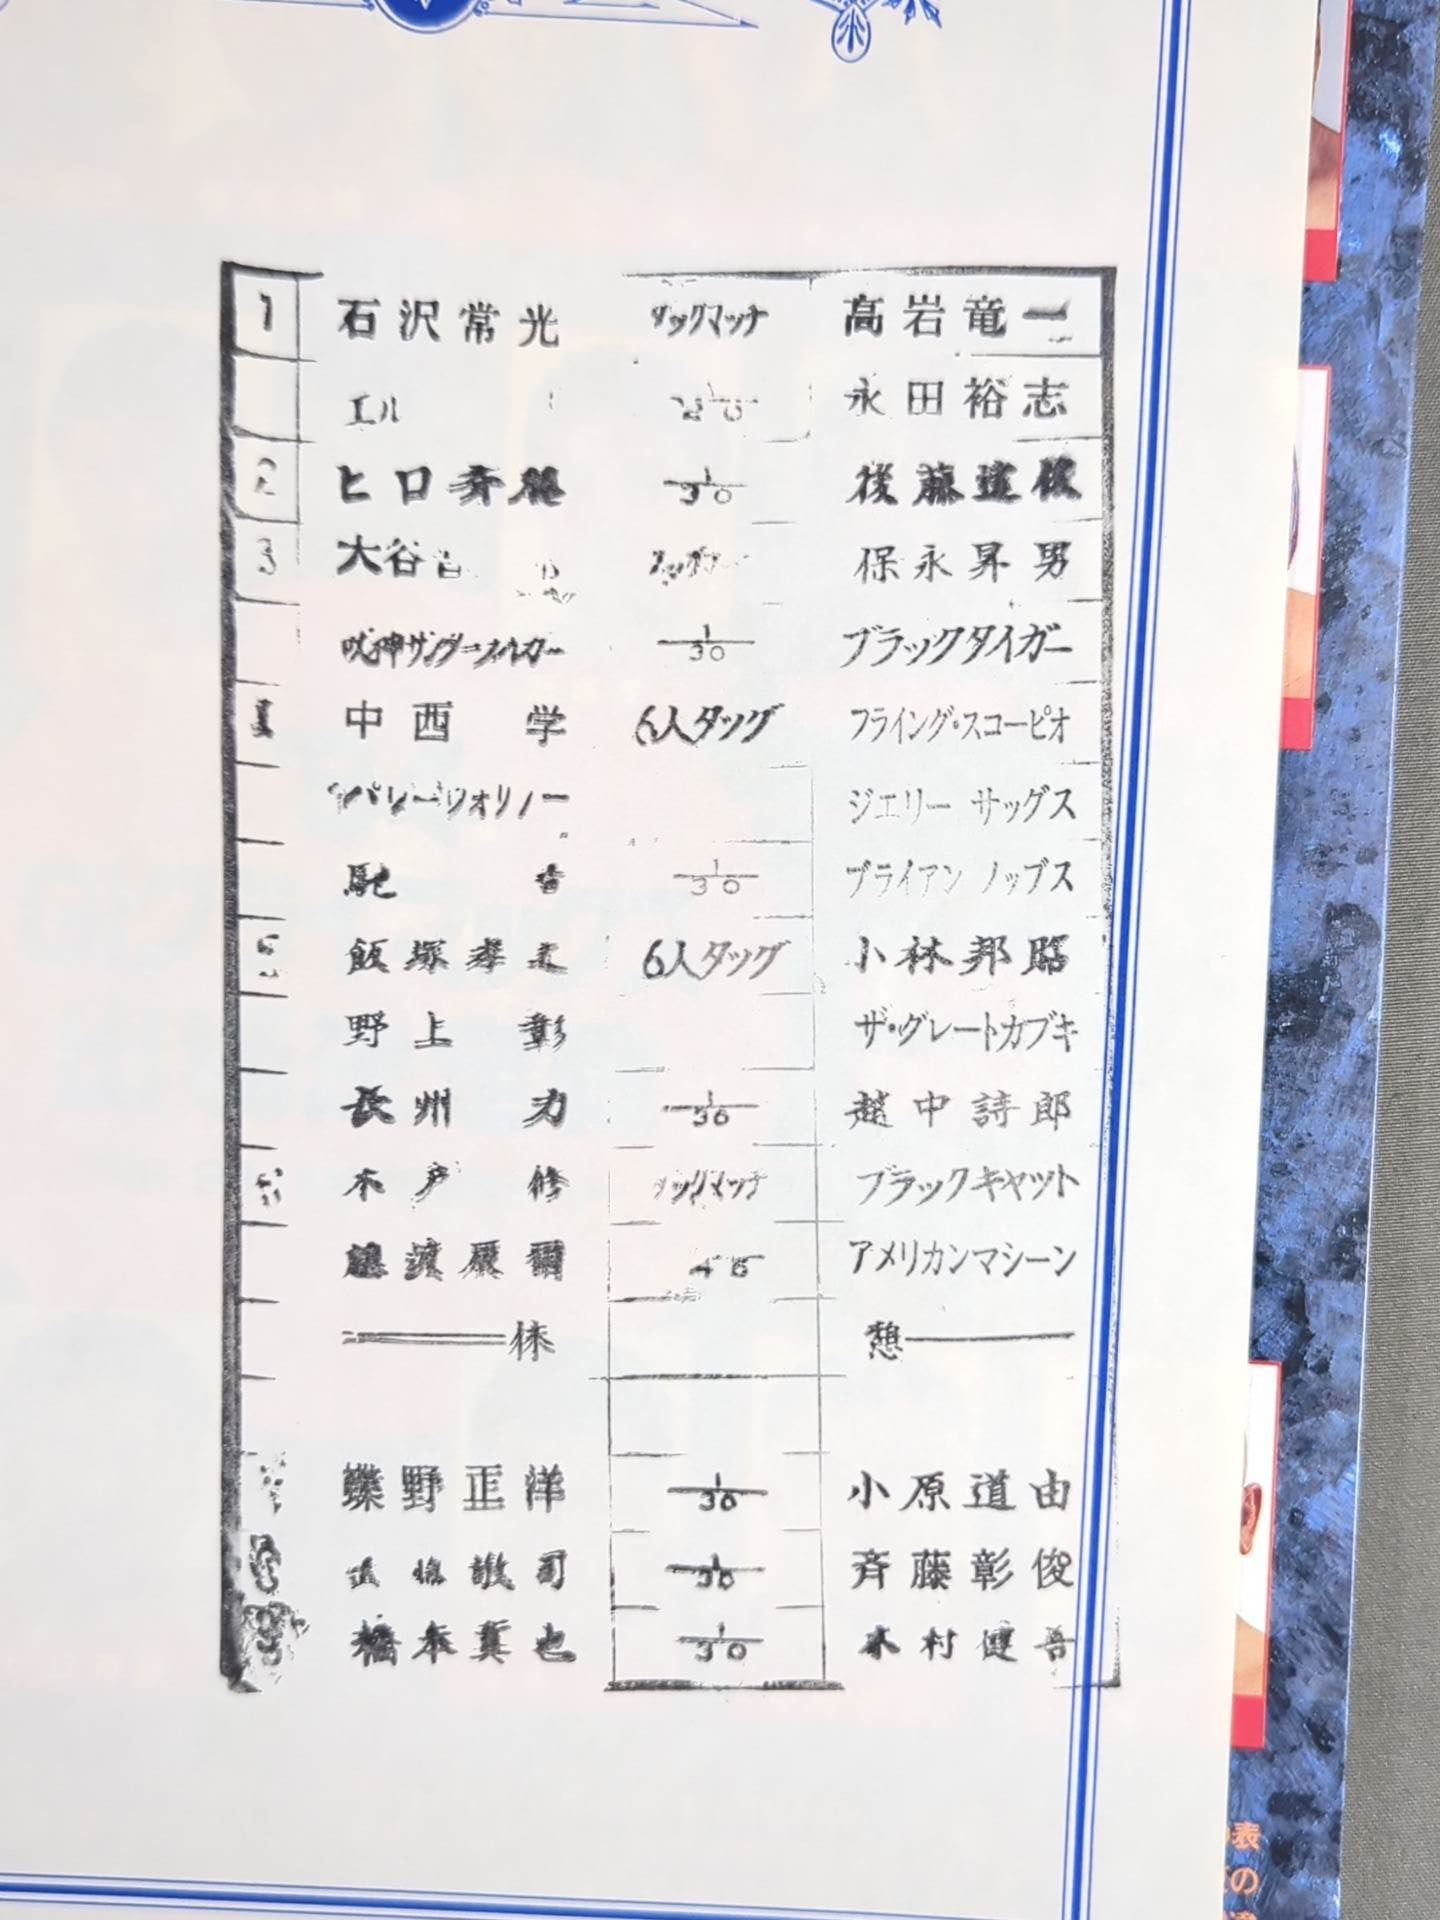 1 石沢常光 タッグマッチ 高岩竜一
エル 1/20 永田裕志
2 ヒロ斉藤 1/30 後藤達俊
3 大谷 保永昇男
獣神サンダーライガー 1/30 ブラックタイガー
4 中西学 6人タッグ フライング・スコーピオ
ジェリー サッグス
馳 1/30 ブライアン ノッブス
5 飯塚孝之 6人タッグ 小林邦昭
野上彰 ザ・グレートカブキ
長州力 1/30 越中詩郎
木戸修 タッグマッチ ブラックキャット
藤波辰爾 アメリカンマシーン
休 憩
蝶野正洋 1/30 小原道由
武藤敬司 1/30 斉藤彰俊
橋本真也 1/30 木村健吾
表
の